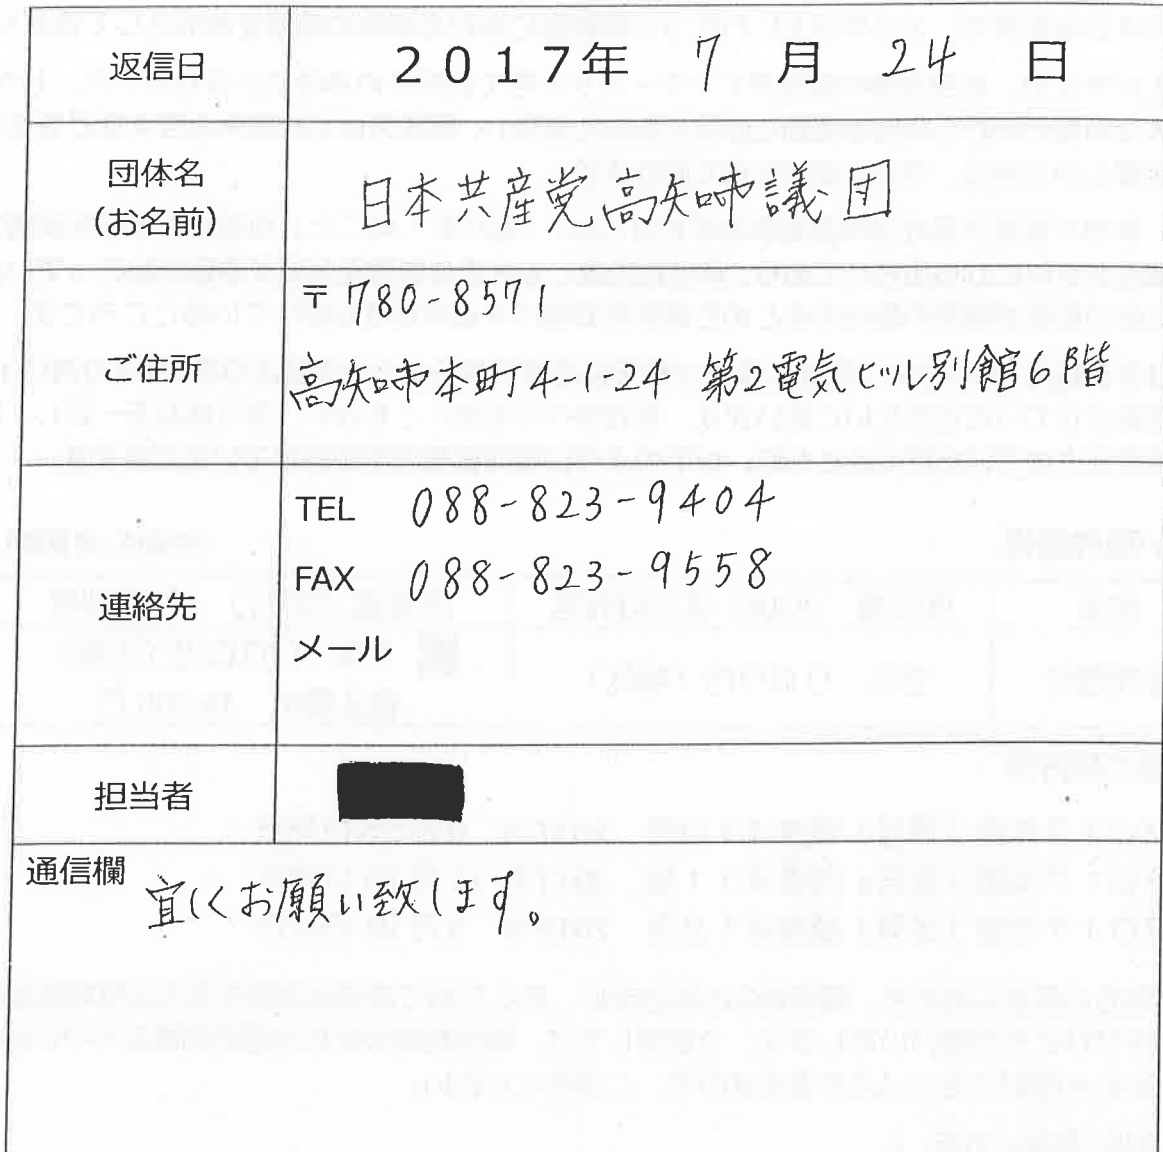 返信日 2017年 7 月 24 日
団体名
(お名前)
日本共産党高知市議団
〒780-8571
ご住所
高知市本町4-11-24 第2電気ビル別館6階
TEL 088-823-9404
FAX 088-823-9558
連絡先
メール
担当者
通信欄
宜しくお願い致します。